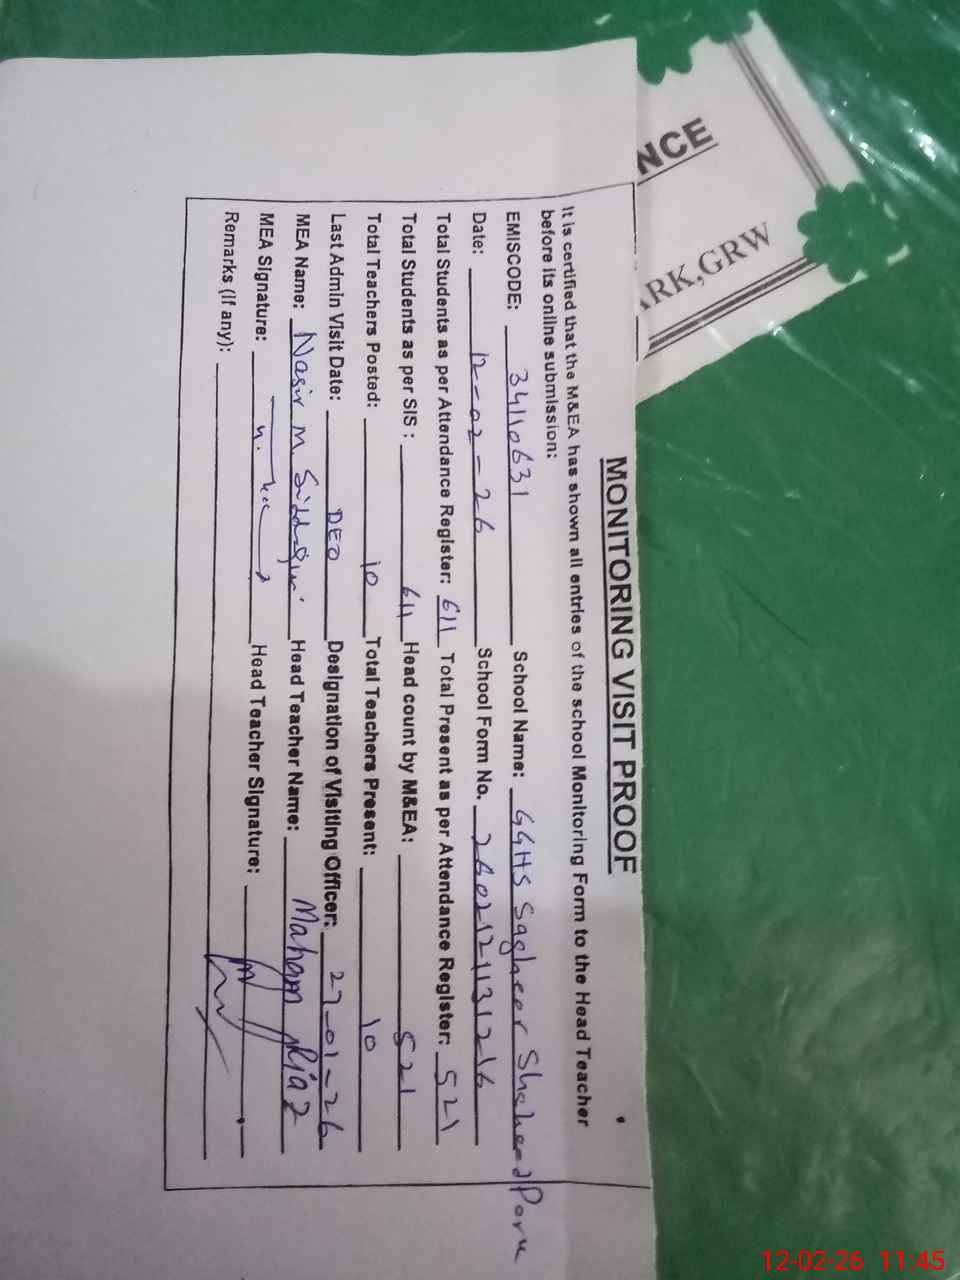 NCE
ARK,GRW
MONITORING VISIT PROOF
It is certified that the M&EA has shown all entries of the school Monitoring Form to the Head Teacher
before its online submission:
EMISCODE: 34110631 School Name: GGHS Sagheer Shaheed Park
Date: 12-02-26 School Form No. 2602121131216
Total Students as per Attendance Register: 611 Total Present as per Attendance Register: 521
Total Students as per SIS : 611 Head count by M&EA: 521
Total Teachers Posted: 10 Total Teachers Present: 10
Last Admin Visit Date: DEO Designation of Visiting Officer: 27-01-26
MEA Name: Nasir M Siddiqui Head Teacher Name: Maham Riaz
MEA Signature: Head Teacher Signature:
Remarks (if any):
12-02-26 11:45